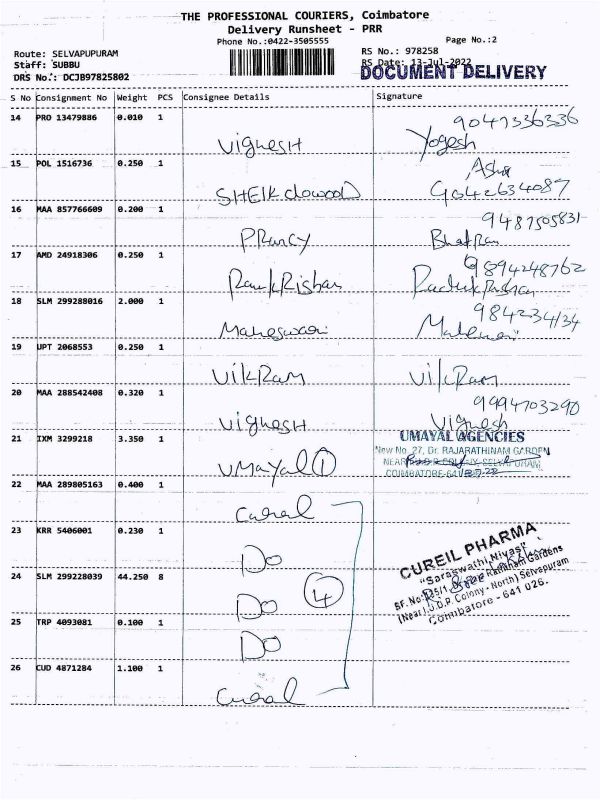 THE PROFESSIONAL COURIERS, Coimbatore
Delivery Runsheet - PRR
Phone No.:0422-3505555
Page No.:2
Route: SELVAPUPURAM
RS No.: 978258
Staff: SUBBU
RS Date: 13-Jul-2022
DRS No.: DCJB97825802
DOCUMENT DELIVERY
S No Consignment No Weight PCS Consignee Details Signature
14 PRO 13479886 0.010 1 Vignesh Yogesh 9047336336
15 POL 1516736 0.250 1 SHEIK dowood Asha 9042634087
16 MAA 857766609 0.200 1 PRancy 9487505831
17 AMD 24918306 0.250 1 RamkRishan 9894248762
18 SLM 299288016 2.000 1 Maheswari 984234134
19 UPT 2068553 0.250 1 VikRam VikRam
20 MAA 288542408 0.320 1 Vignesh Vignesh 9994703290
21 IXM 3299218 3.350 1 UMayal 1
UMAYAL AGENCIES
New No. 27, Dr. RAJARATHINAM GARDEN
22 MAA 289805163 0.400 1 Cureal
23 KRR 5406001 0.230 1 Do
24 SLM 299228039 44.250 8 Do 4
25 TRP 4093081 0.100 1 Do
26 CUD 4871284 1.100 1 Cureal
CUREIL PHARMA
"Saraswathi Nivas"
(Near) J.D.R. Colony - North) Selvapuram
Coimbatore - 641 026.